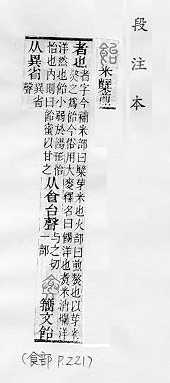 段注本
飴米糱煎
者也者字今補米部曰糱芽米也火部曰煎熬也以芽米
熬之爲飴今俗用大麥釋名曰餳洋也煮米消爛洋
洋然也飴小弱於餳形怡
怡也內則曰飴蜜以甘之从食台聲与之切
一部籒文飴
从異省異省
聲
(食部 P.221)